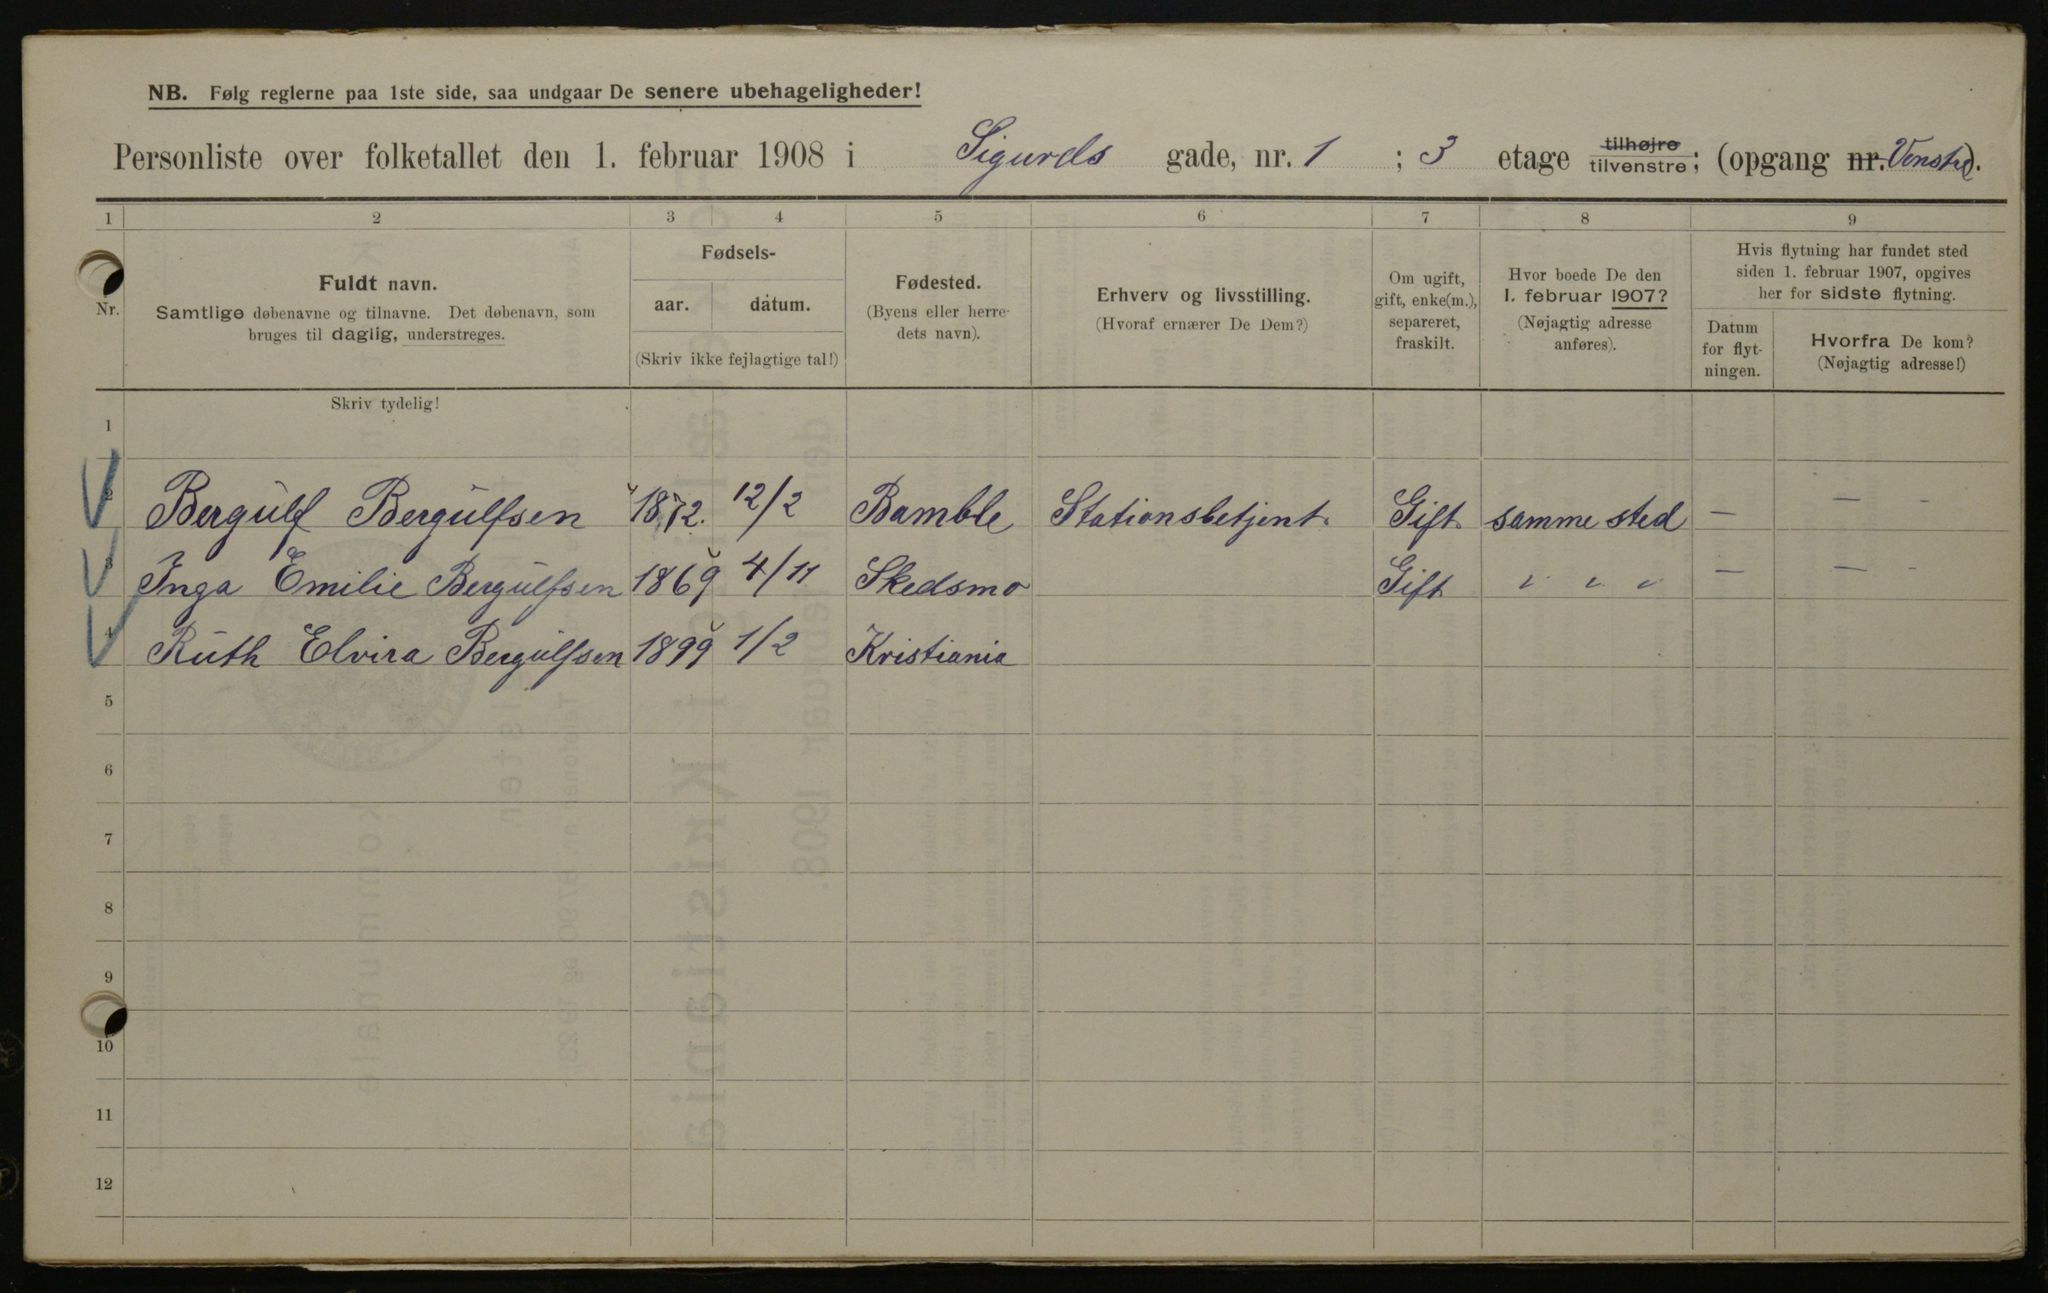 NB. Følg reglerne paa 1ste side, saa undgaar De senere ubehageligheder!
Personliste over folketallet den 1. februar 1908 i Sigurds gade, nr. 1 ; 3 etage tilhøjre tilvenstre; (opgang nr. Venstre).
1 2 3 4 5 6 7 8 9
Nr.
Fuldt navn.
Samtlige døbenavne og tilnavne. Det døbenavn, som
bruges til daglig, understreges.
Skriv tydelig!
Fødsels-
aar. datum.
(Skriv ikke fejlagtige tal!)
Fødested.
(Byens eller herre-
dets navn).
Erhverv og livsstilling.
(Hvoraf ernærer De Dem?)
Om ugift,
gift, enke(m.),
separeret,
fraskilt.
Hvor boede De den
1. februar 1907?
(Nøjagtig adresse
anføres).
Hvis flytning har fundet sted
siden 1. februar 1907, opgives
her for sidste flytning.
Datum
for flyt-
ningen.
Hvorfra De kom?
(Nøjagtig adresse!)
1
2 Bergülf Bergülfsen 1872. 12/2 Bamble Stationsbetjent. Gift samme sted — — -
3 Inga Emilie Bergülfsen 1869 4/11 Skedsmo Gift " " " — — -
4 Rüth Elvira Bergülfsen 1899 1/2 Kristiania
5
6
7
8
9
10
11
12